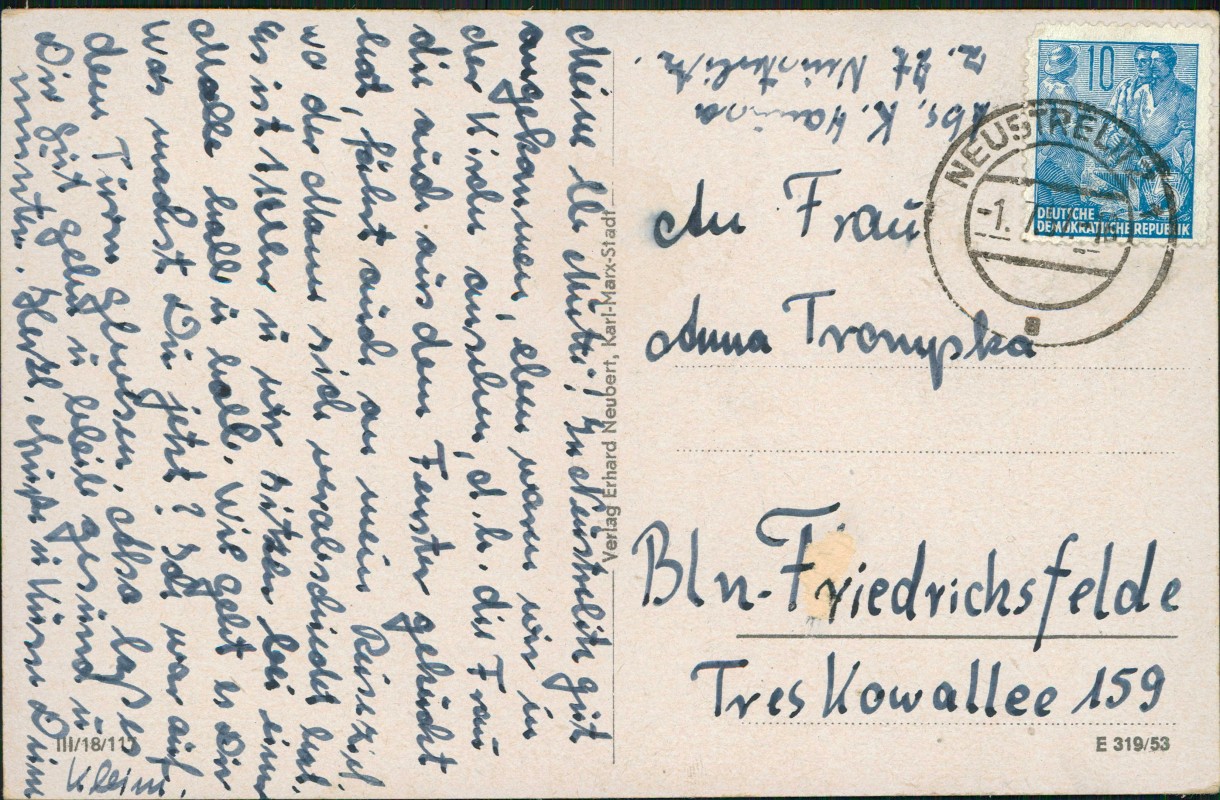 Meine lb. Mutti! In Neustrelitz gut
angekommen, eben waren wir in
der Kirche ansehen, d.h. die Frau
die auch aus dem Fenster geguckt
hat, fährt auch an mein Reiseziel,
wo der Mann sich verabschiedet hat.
Es ist 11 Uhr u. wir sitzen bei einer
Molle halb u. halb. Wie geht es Dir
was machst Du jetzt? Ich war auf
dem Turm gewesen. Also laß es
Dir gut gehen u. bleib gesund u.
munter. Herzl. Grüße u. Küsse Deine
Kleine.
III/18/117
Verlag Erhard Neubert, Karl-Marx-Stadt
Abs. K.
z. Zt Neustrelitz.
10
DEUTSCHE
DEMOKRATISCHE REPUBLIK
NEUSTRELITZ
-1. 7.
An Frau
Anna Trompka
Bln-Friedrichsfelde
Treskowallee 159
E 319/53